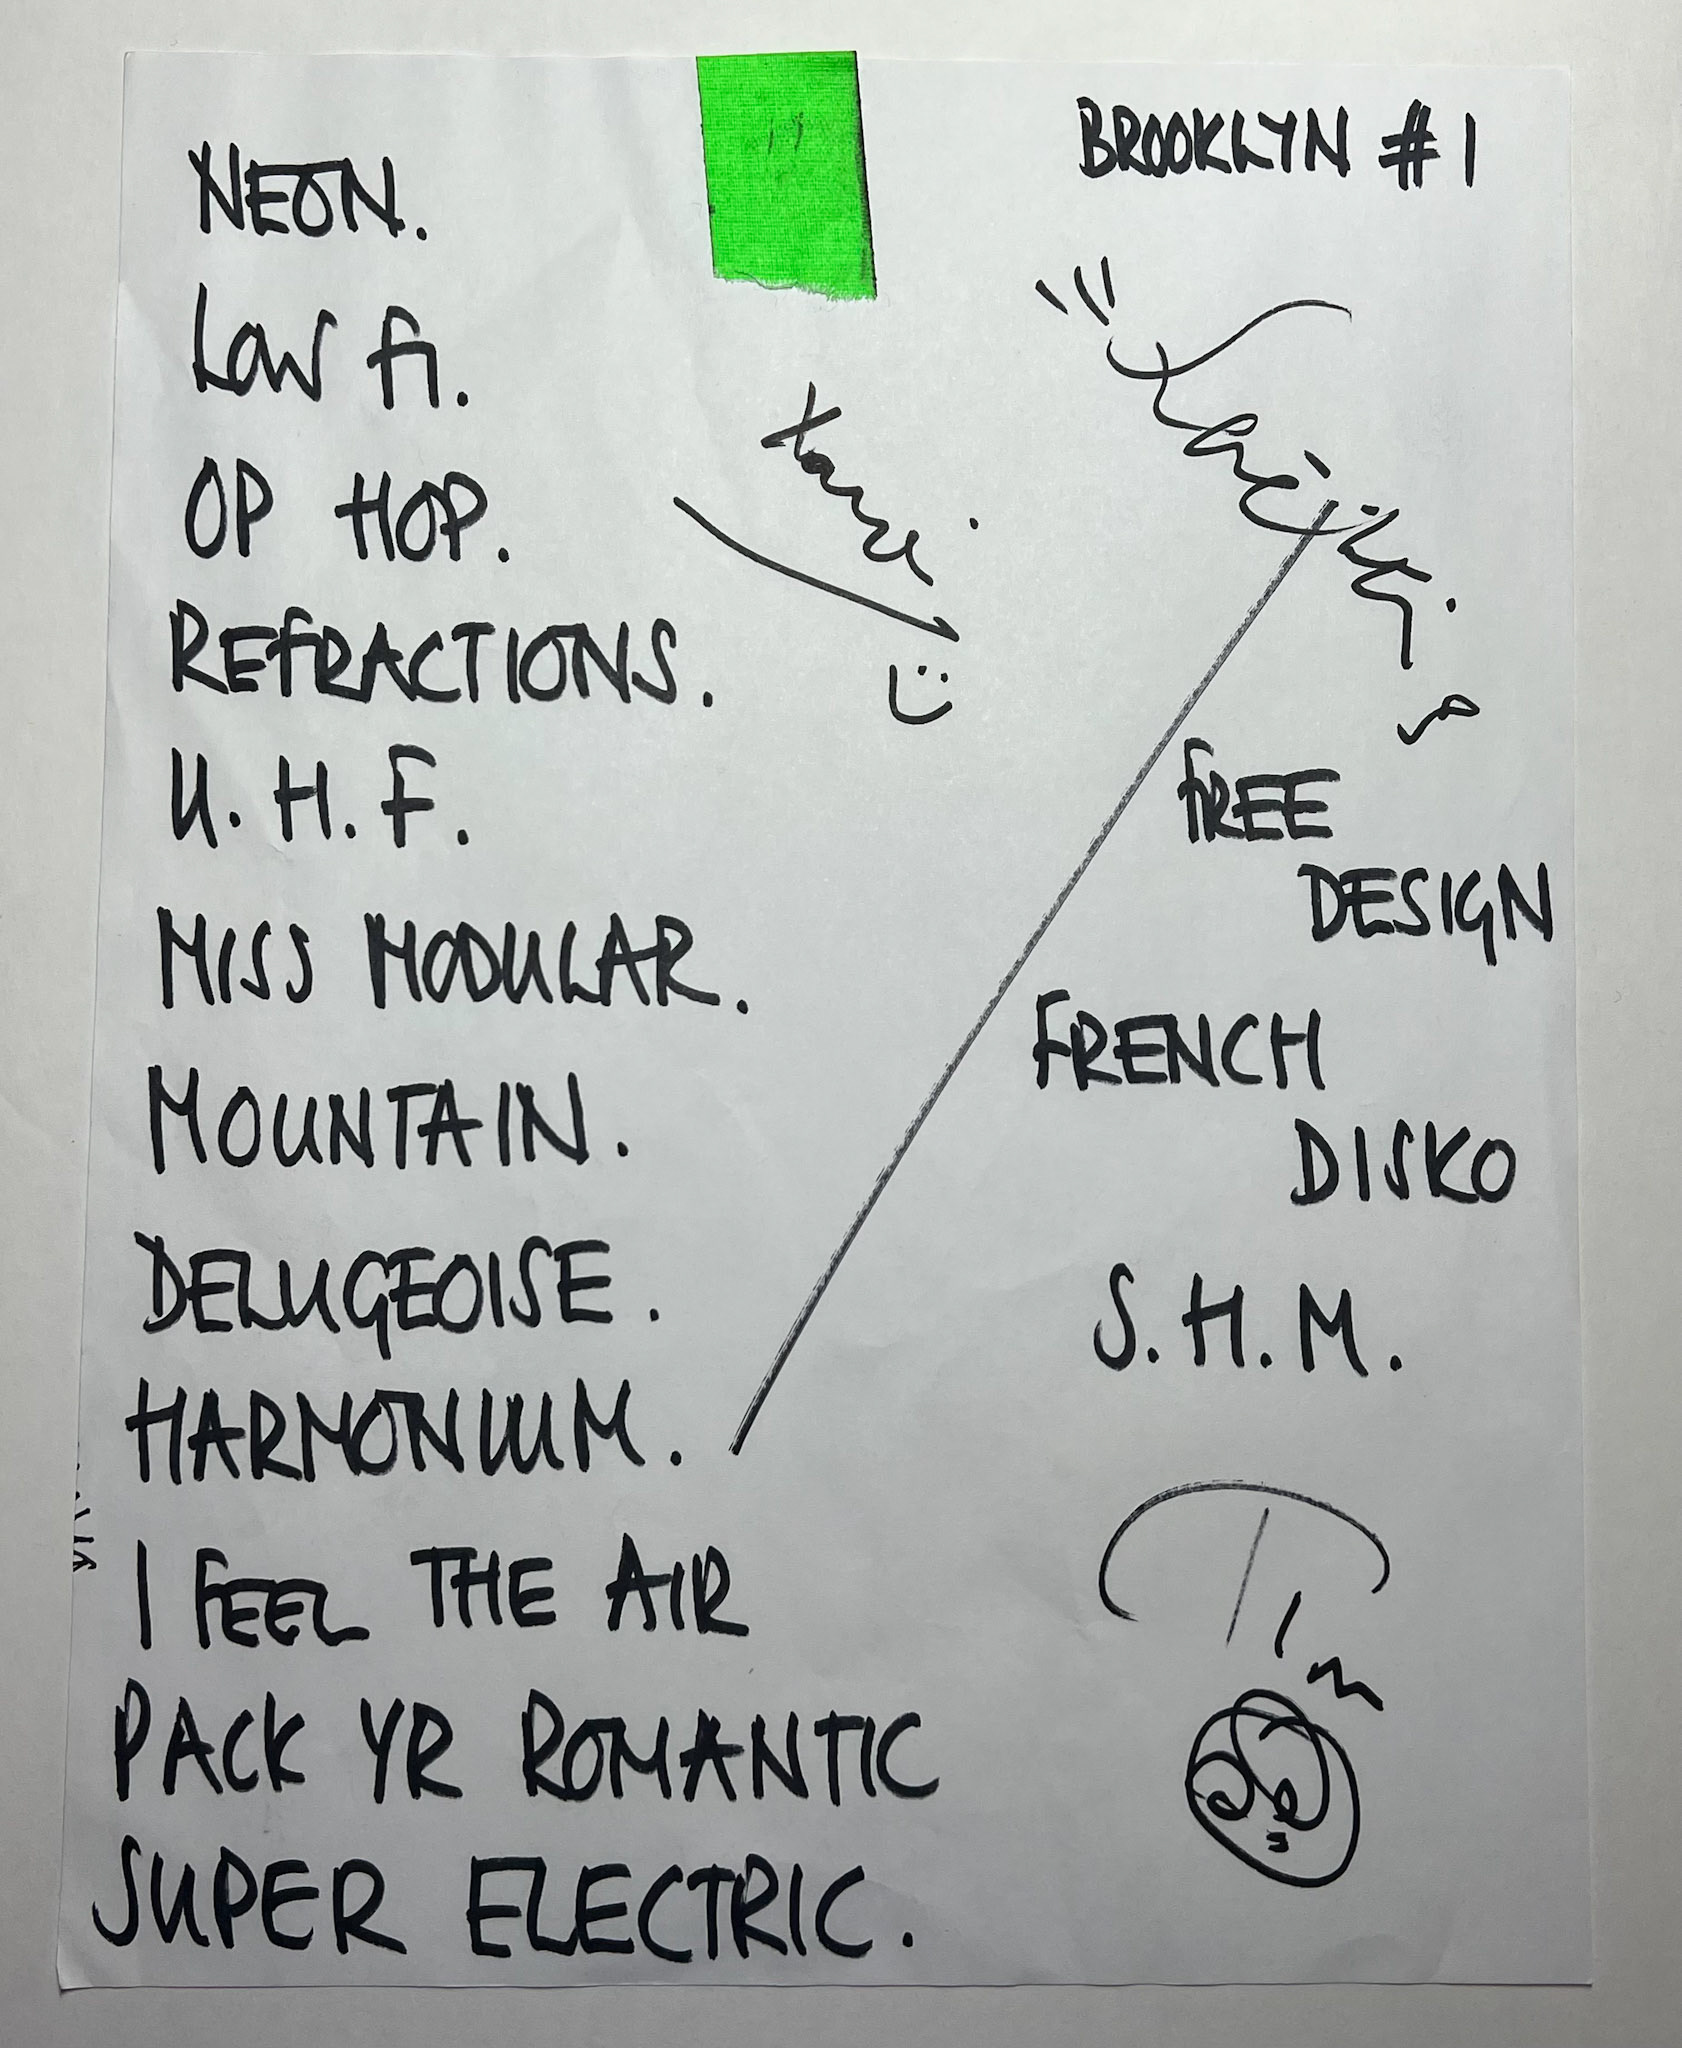 BROOKLYN #1
NEON.
LOW FI.
OP HOP.
REFRACTIONS.
U.H.F.
MISS MODULAR.
MOUNTAIN.
DELUGEOISE.
HARMONIUM.
I FEEL THE AIR
PACK YR ROMANTIC
SUPER ELECTRIC.
Xavi
FREE
DESIGN
FRENCH
DISKO
S.H.M.
Tim